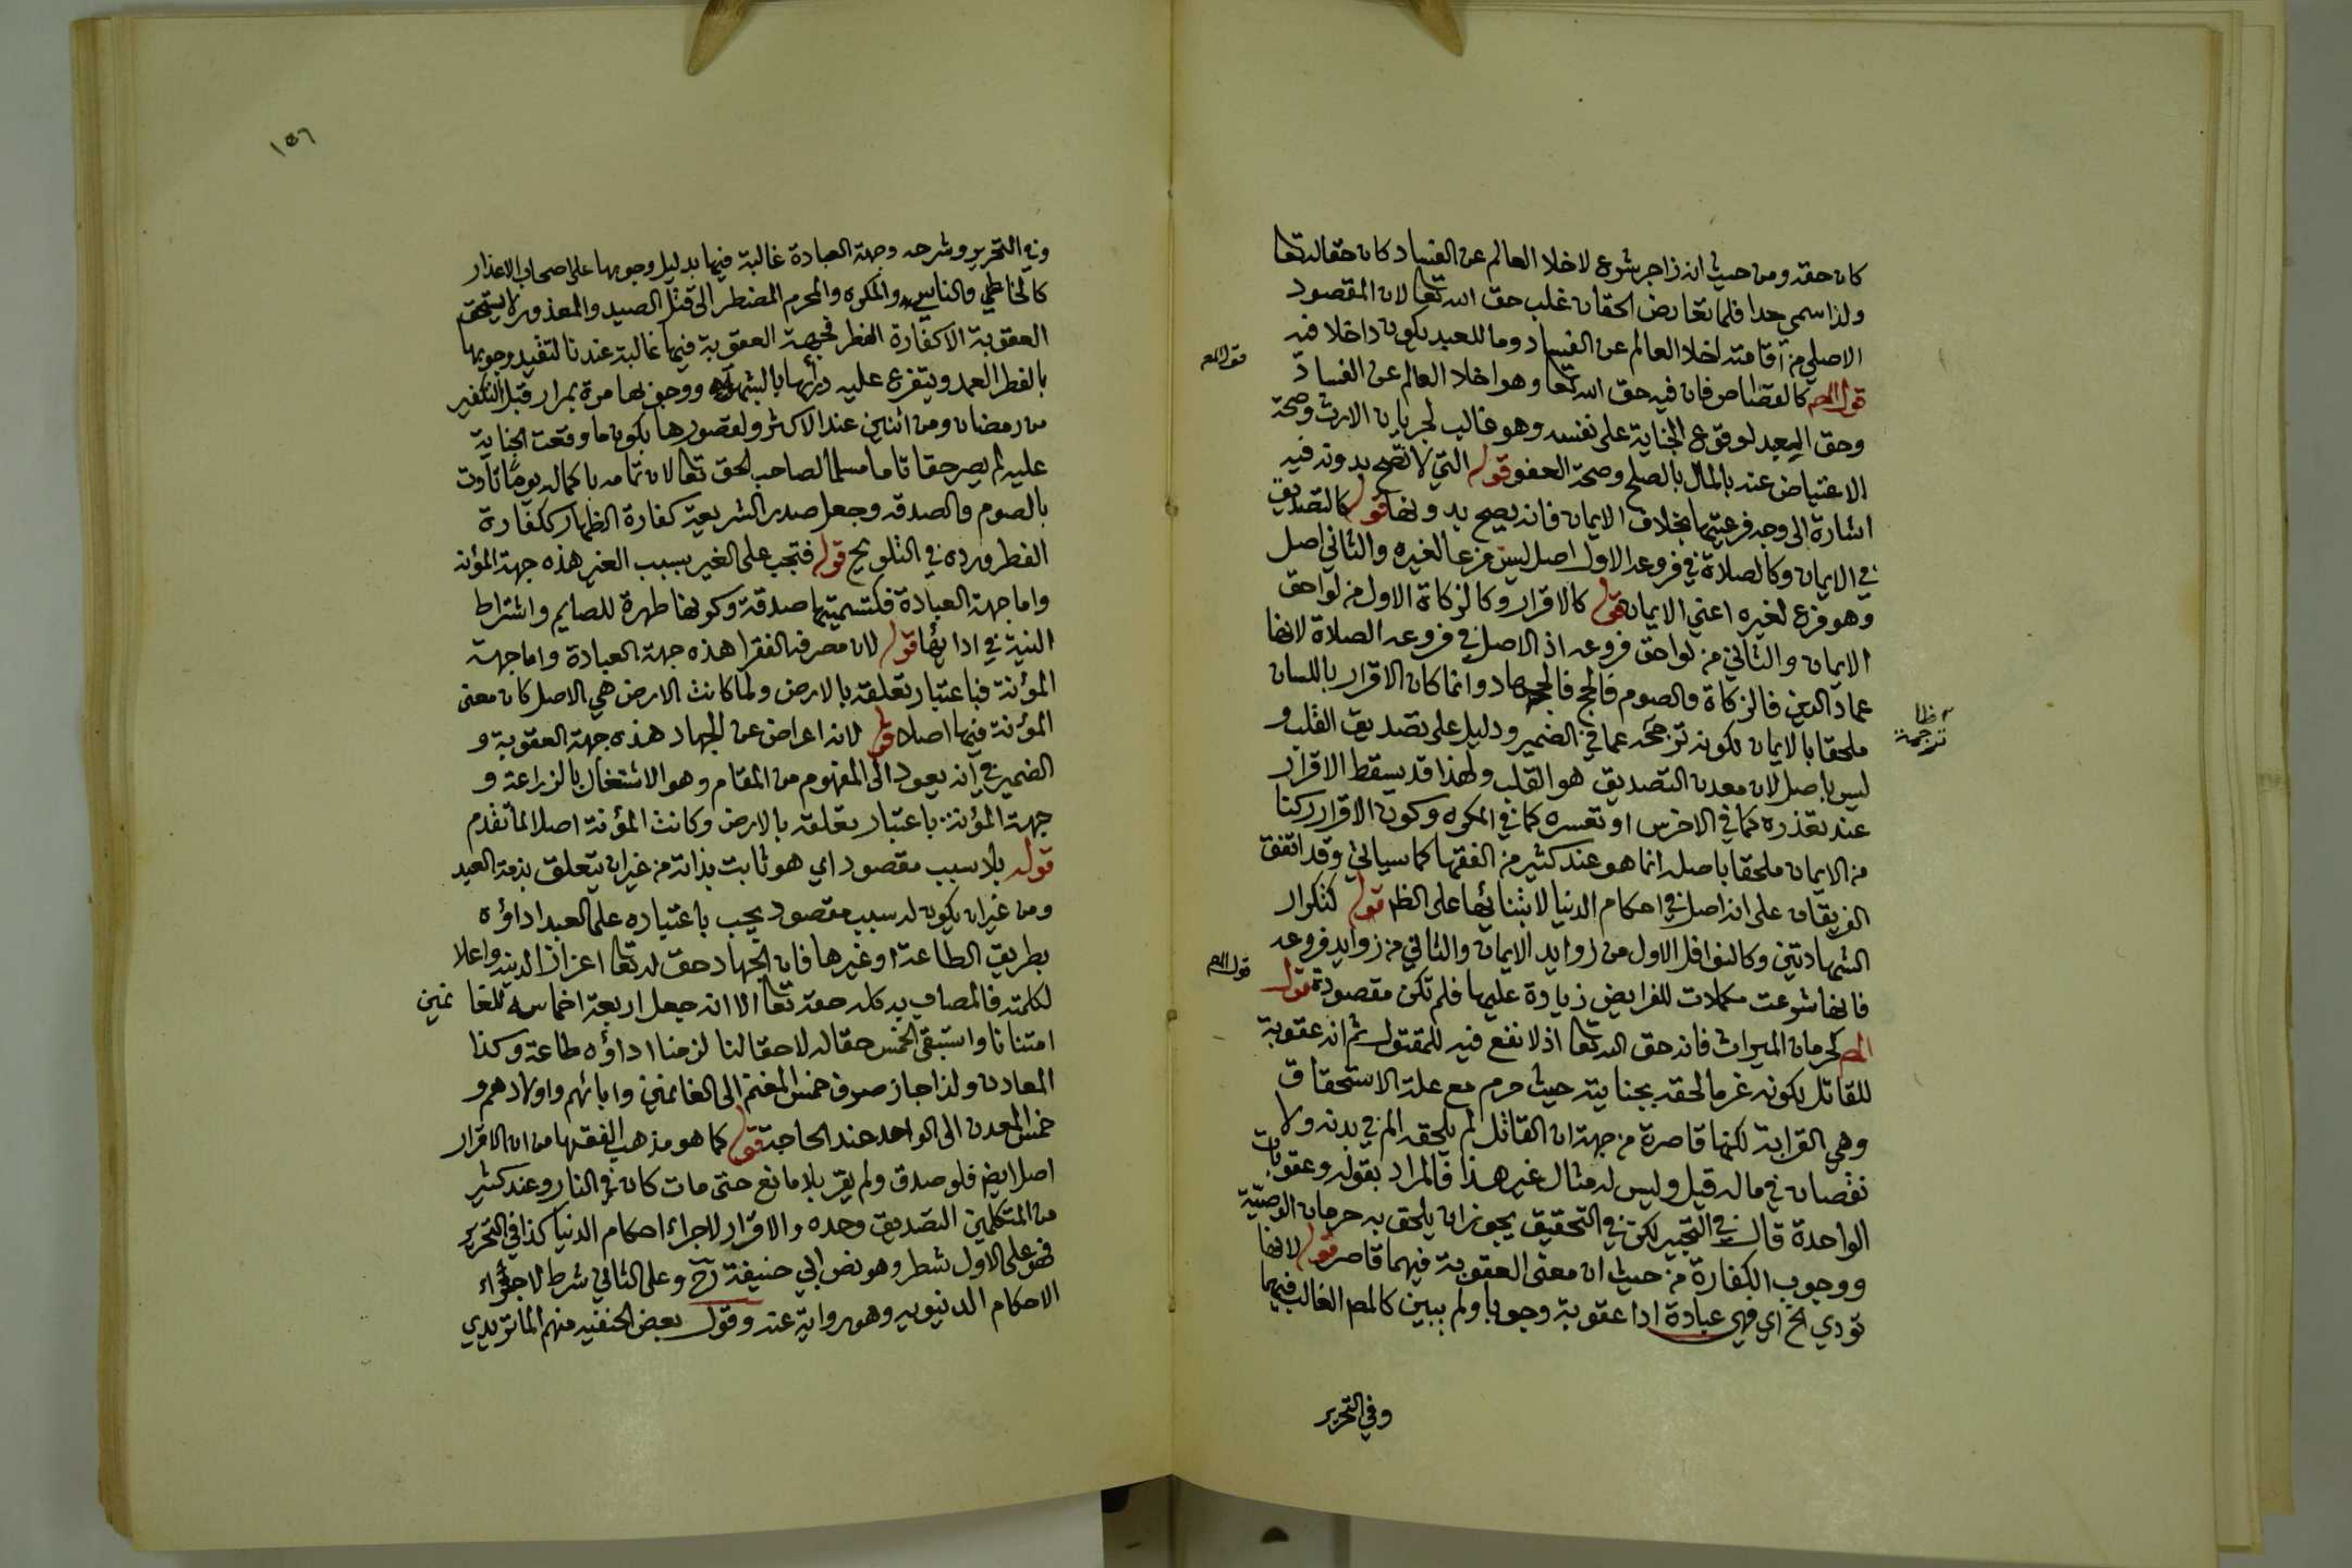 كان حقه ومن حيث انه زاجر شرع لاخلا العالم عن الفساد كان حقا لله تعا
ولذا سمي حدا فلما تعارض الحقان غلب حق الله تعا لان المقصود
الاصلي من اقامته اخلا العالم عن الفساد وما للعبد يكون داخلا فيه
قول المص
قول المص كالقصاص فان فيه حق الله تعا وهو اخلا العالم عن الفساد
وحق العبد لوقوع الجناية على نفسه وهو غالب لجريان الارث وصحة
الاعتياض عنه بالمال بالصلح وصحة العفو قوله التي لا تصح بدونه فيه
اشارة الى وجه فرعيتها بخلاف الايمان فانه يصح بدونها قوله كالتصديق
في الايمان وكالصلاة في فروعه الاول اصل ليس فرعا لغيره والثاني اصل
وهو فرع لغيره اعني الايمان قوله كالاقرار وكالزكاة الاول من لواحق
الايمان والثاني من لواحق فروعه اذ الاصل في فروعه الصلاة لانها
عماد الدين فالزكاة فالصوم فالحج فالجهاد وانما كان الاقرار باللسان
ملحقا بالايمان لكونه ترجمة عما في الضمير ودليل على تصديق القلب و
ترجمة
ليس باصل لان معدن التصديق هو القلب ولهذا قد يسقط الاقرار
عند تعذره كما في الاخرس او تعسره كما في المكره وكون الاقرار ركنا
من الايمان ملحقا باصله انما هو عند كثير من الفقها كما سياتي وقد اتفق
الفريقان على انه اصل في احكام الدنيا لابتنائها على الظ قوله كتكرار
الشهادتين وكالنوافل الاول من زوايد الايمان والثاني من زوايد فروعه
فانها شرعت مكملات للفرايض زيادة عليها فلم تكن مقصودة قول
قول المص
المص كحرمان الميراث فانه حق الله تعا اذ لا نفع فيه للمقتول ثم انه عقوبة
للقاتل لكونه غرما لحقه بجنايته حيث حرم مع علة الاستحقاق
وهي القرابة لكنها قاصرة من جهة ان القاتل لم يلحقه الم في بدنه ولا
نقصان في ماله قيل وليس له مثال غير هذا فالمراد بقوله وعقوبات
الواحدة قال في التحبير لكن في التحقيق يجوز ان يلحق به حرمان الوصية
ووجوب الكفارة من حيث ان معنى العقوبة فيهما قاصر قوله لانها
تودي الخ اي فهي عبادة ادا عقوبة وجوبا ولم يبين كالمص الغالب فيها
وفي التحرير
١٥٦
وفي التحرير وشرحه وجهة العبادة غالبة فيها بدليل وجوبها على اصحاب الاعذار
كالخاطي والناسي والمكره والمحرم المضطر الى قتل الصيد والمعذور لا يستحق
العقوبة الا كفارة الفطر فجهة العقوبة فيها غالبة عندنا لتقيد وجوبها
بالفطر العمد ويتفرع عليه درأها بالشبهة ووجوبها مرة بمرار قبل التكفير
من رمضان ومن اثنين عند الاكثر ولقصورها بكون ما وقعت الجناية
عليه لم يصر حقا تاما مسلما لصاحب الحق تعا لان تمامه باكماله يوما تاوت
بالصوم والصدقه وجعل صدر الشريعة كفارة الظهار ككفارة
الفطر ورده في التلويح قوله فتجب على الغير بسبب الغير هذه جهة المؤنه
واما جهة العبادة فكتسميتها صدقة وكونها طهرة للصايم واشتراط
النية في ادايها قوله لان مصرفه الفقرا هذه جهة العبادة واما جهة
المؤنة فباعتبار تعلقه بالارض ولما كانت الارض هي الاصل كان معنى
المؤنة فيها اصلا قوله لانه اعراض عن الجهاد هذه جهة العقوبة و
الضمير في انه يعود الى المفهوم من المقام وهو الاشتغال بالزراعة و
جهة المؤنة باعتبار تعلقه بالارض وكانت المؤنة اصلا لما تقدم
قوله بلا سبب مقصود اي هو ثابت بذاته من غير ان يتعلق بذمة العبد
ومن غير ان يكون له سبب مقصود يجب باعتباره على العبد اداؤه
بطريق الطاعة او غيرها فان الجهاد حق له تعا اعزازا لدينه واعلا
لكلمته فالمصاب به كله حقه تعا الا انه جعل اربعة اخماسه للغانمين
امتنانا واستبقى الخمس حقا له لا حقا لنا لزمنا اداؤه طاعة وكذا
المعادن ولذا جاز صرف خمس المغنم الى الغانمين وابائهم واولادهم و
خمس المعدن الى الواحد عند الحاجة قوله كما هو مذهب الفقها من ان الاقرار
اصل ايض فلو صدق ولم يقر بلا مانع حتى مات كان في النار وعند كثير
من المتكلمين التصديق وحده والاقرار لاجراء احكام الدنيا كذا في التحرير
فهو على الاول شطر وهو نص ابي حنيفة رح وعلى الثاني شرط لاجراء
الاحكام الدنيويه وهو رواية عنه وقول بعض الحنفيه منهم الماتريدي